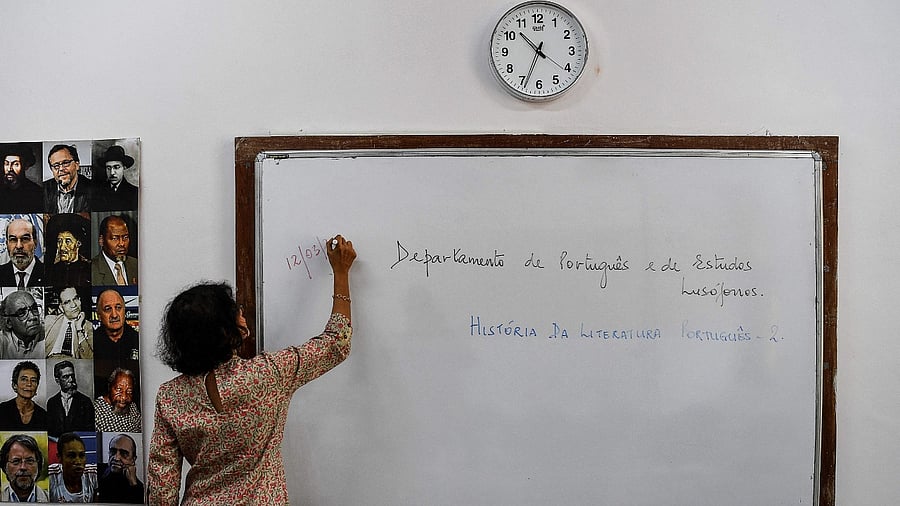 11 12 1
10 2
9 3
8 4
7 6 5
12/03/
Departamento de Português e de Estudos
Lusófonos.
HISTÓRIA DA LITERATURA PORTUGUÊS - 2.